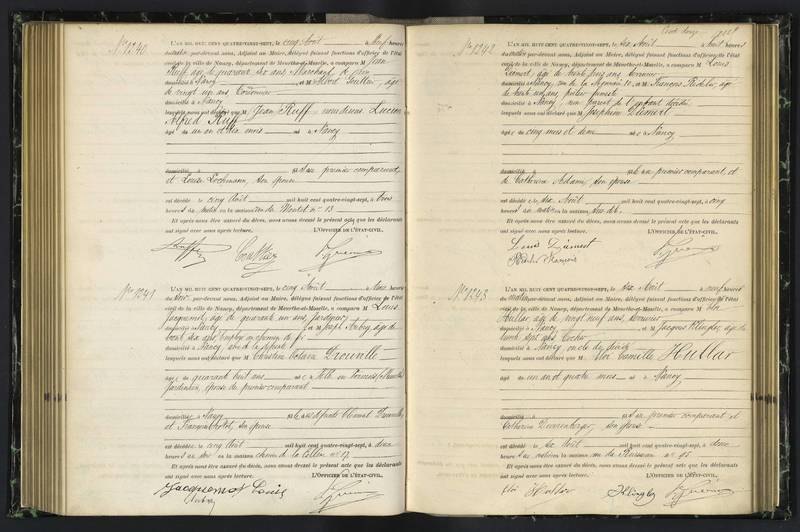 N° 1240
L'AN MIL HUIT CENT QUATRE-VINGT-SEPT, le cinq Août à neuf heures
du matin par-devant nous, Adjoint au Maire, délégué faisant fonctions d'officier de l'état
civil de la ville de Nancy, département de Meurthe-et-Moselle, a comparu M Jean
Ruff âgé de quarante six ans, Marchand de
domicilié à Nancy et M Albert âgé
de vingt un ans
domicilié à Nancy
lesquels nous ont déclaré que M Jean Ruff Lucien
Alfred Ruff
âgé de un an et dix mois né à Nancy
domicilié à fils du premier comparant
et Louise Lochmann, son épouse
est décédé le cinq Août mil huit cent quatre-vingt-sept, à trois
heures du matin en sa maison rue du Montet n° 13
Et après nous être assuré du décès, nous avons dressé le présent acte que les déclarants
ont signé avec nous après lecture. L'OFFICIER DE L'ÉTAT-CIVIL.
N° 1241
L'AN MIL HUIT CENT QUATRE-VINGT-SEPT, le cinq Août à trois heures
du soir par-devant nous, Adjoint au Maire, délégué faisant fonctions d'officier de l'état
civil de la ville de Nancy, département de Meurthe-et-Moselle, a comparu M Louis
Jacquemot, âgé de quarante un ans, Jardinier
domicilié à Nancy et M Aubry, âgé de
ans employé au chemin de fer
domicilié à Nancy
lesquels nous ont déclaré que M Christine Octavie Drouville
âgée de quarante huit ans née à
Jardinière, épouse du premier comparant
domiciliée à Nancy fille de
et Françoise son épouse
est décédée le cinq Août mil huit cent quatre-vingt-sept, à deux
heures du soir en sa maison chemin de la Colline n° 13
Et après nous être assuré du décès, nous avons dressé le présent acte que les déclarants
ont signé avec nous après lecture. L'OFFICIER DE L'ÉTAT-CIVIL.
Jacquemot Louis
Aubry
N° 1242
L'AN MIL HUIT CENT QUATRE-VINGT-SEPT, le six Août à huit heures
du matin par-devant nous, Adjoint au Maire, délégué faisant fonctions d'officier de l'état
civil de la ville de Nancy, département de Meurthe-et-Moselle, a comparu M Louis
Diemert, âgé de trente cinq ans,
domicilié à Nancy, et M François âgé
de trente un ans,
domicilié à Nancy, non parent de l'enfant décédé
lesquels nous ont déclaré que M Joséphine Diemert
âgée de cinq mois et demi née à Nancy
domicilié à fille du premier comparant, et
de Catherine Adam, son épouse
est décédée le six Août mil huit cent quatre-vingt-sept, à cinq
heures du matin en sa maison, sus dite.
Et après nous être assuré du décès, nous avons dressé le présent acte que les déclarants
ont signé avec nous après lecture. L'OFFICIER DE L'ÉTAT-CIVIL.
Louis Diemert
N° 1243
L'AN MIL HUIT CENT QUATRE-VINGT-SEPT, le six Août à neuf heures
du matin par-devant nous, Adjoint au Maire, délégué faisant fonctions d'officier de l'état
civil de la ville de Nancy, département de Meurthe-et-Moselle, a comparu M Eloi
Hullar âgé de vingt neuf ans,
domicilié à Nancy et M Jacques Klingler, âgé de
trente sept ans Cocher
domicilié à Nancy oncle du décédé
lesquels nous ont déclaré que M Eloi Camille Hullar
âgé de un an et quatre mois né à Nancy
domicilié à fils du premier comparant et
Catherine son épouse
est décédé le six Août mil huit cent quatre-vingt-sept, à deux
heures du matin en sa maison rue du Ruisseau n° 95
Et après nous être assuré du décès, nous avons dressé le présent acte que les déclarants
ont signé avec nous après lecture. L'OFFICIER DE L'ÉTAT-CIVIL.
Eloi Hullar Klingler